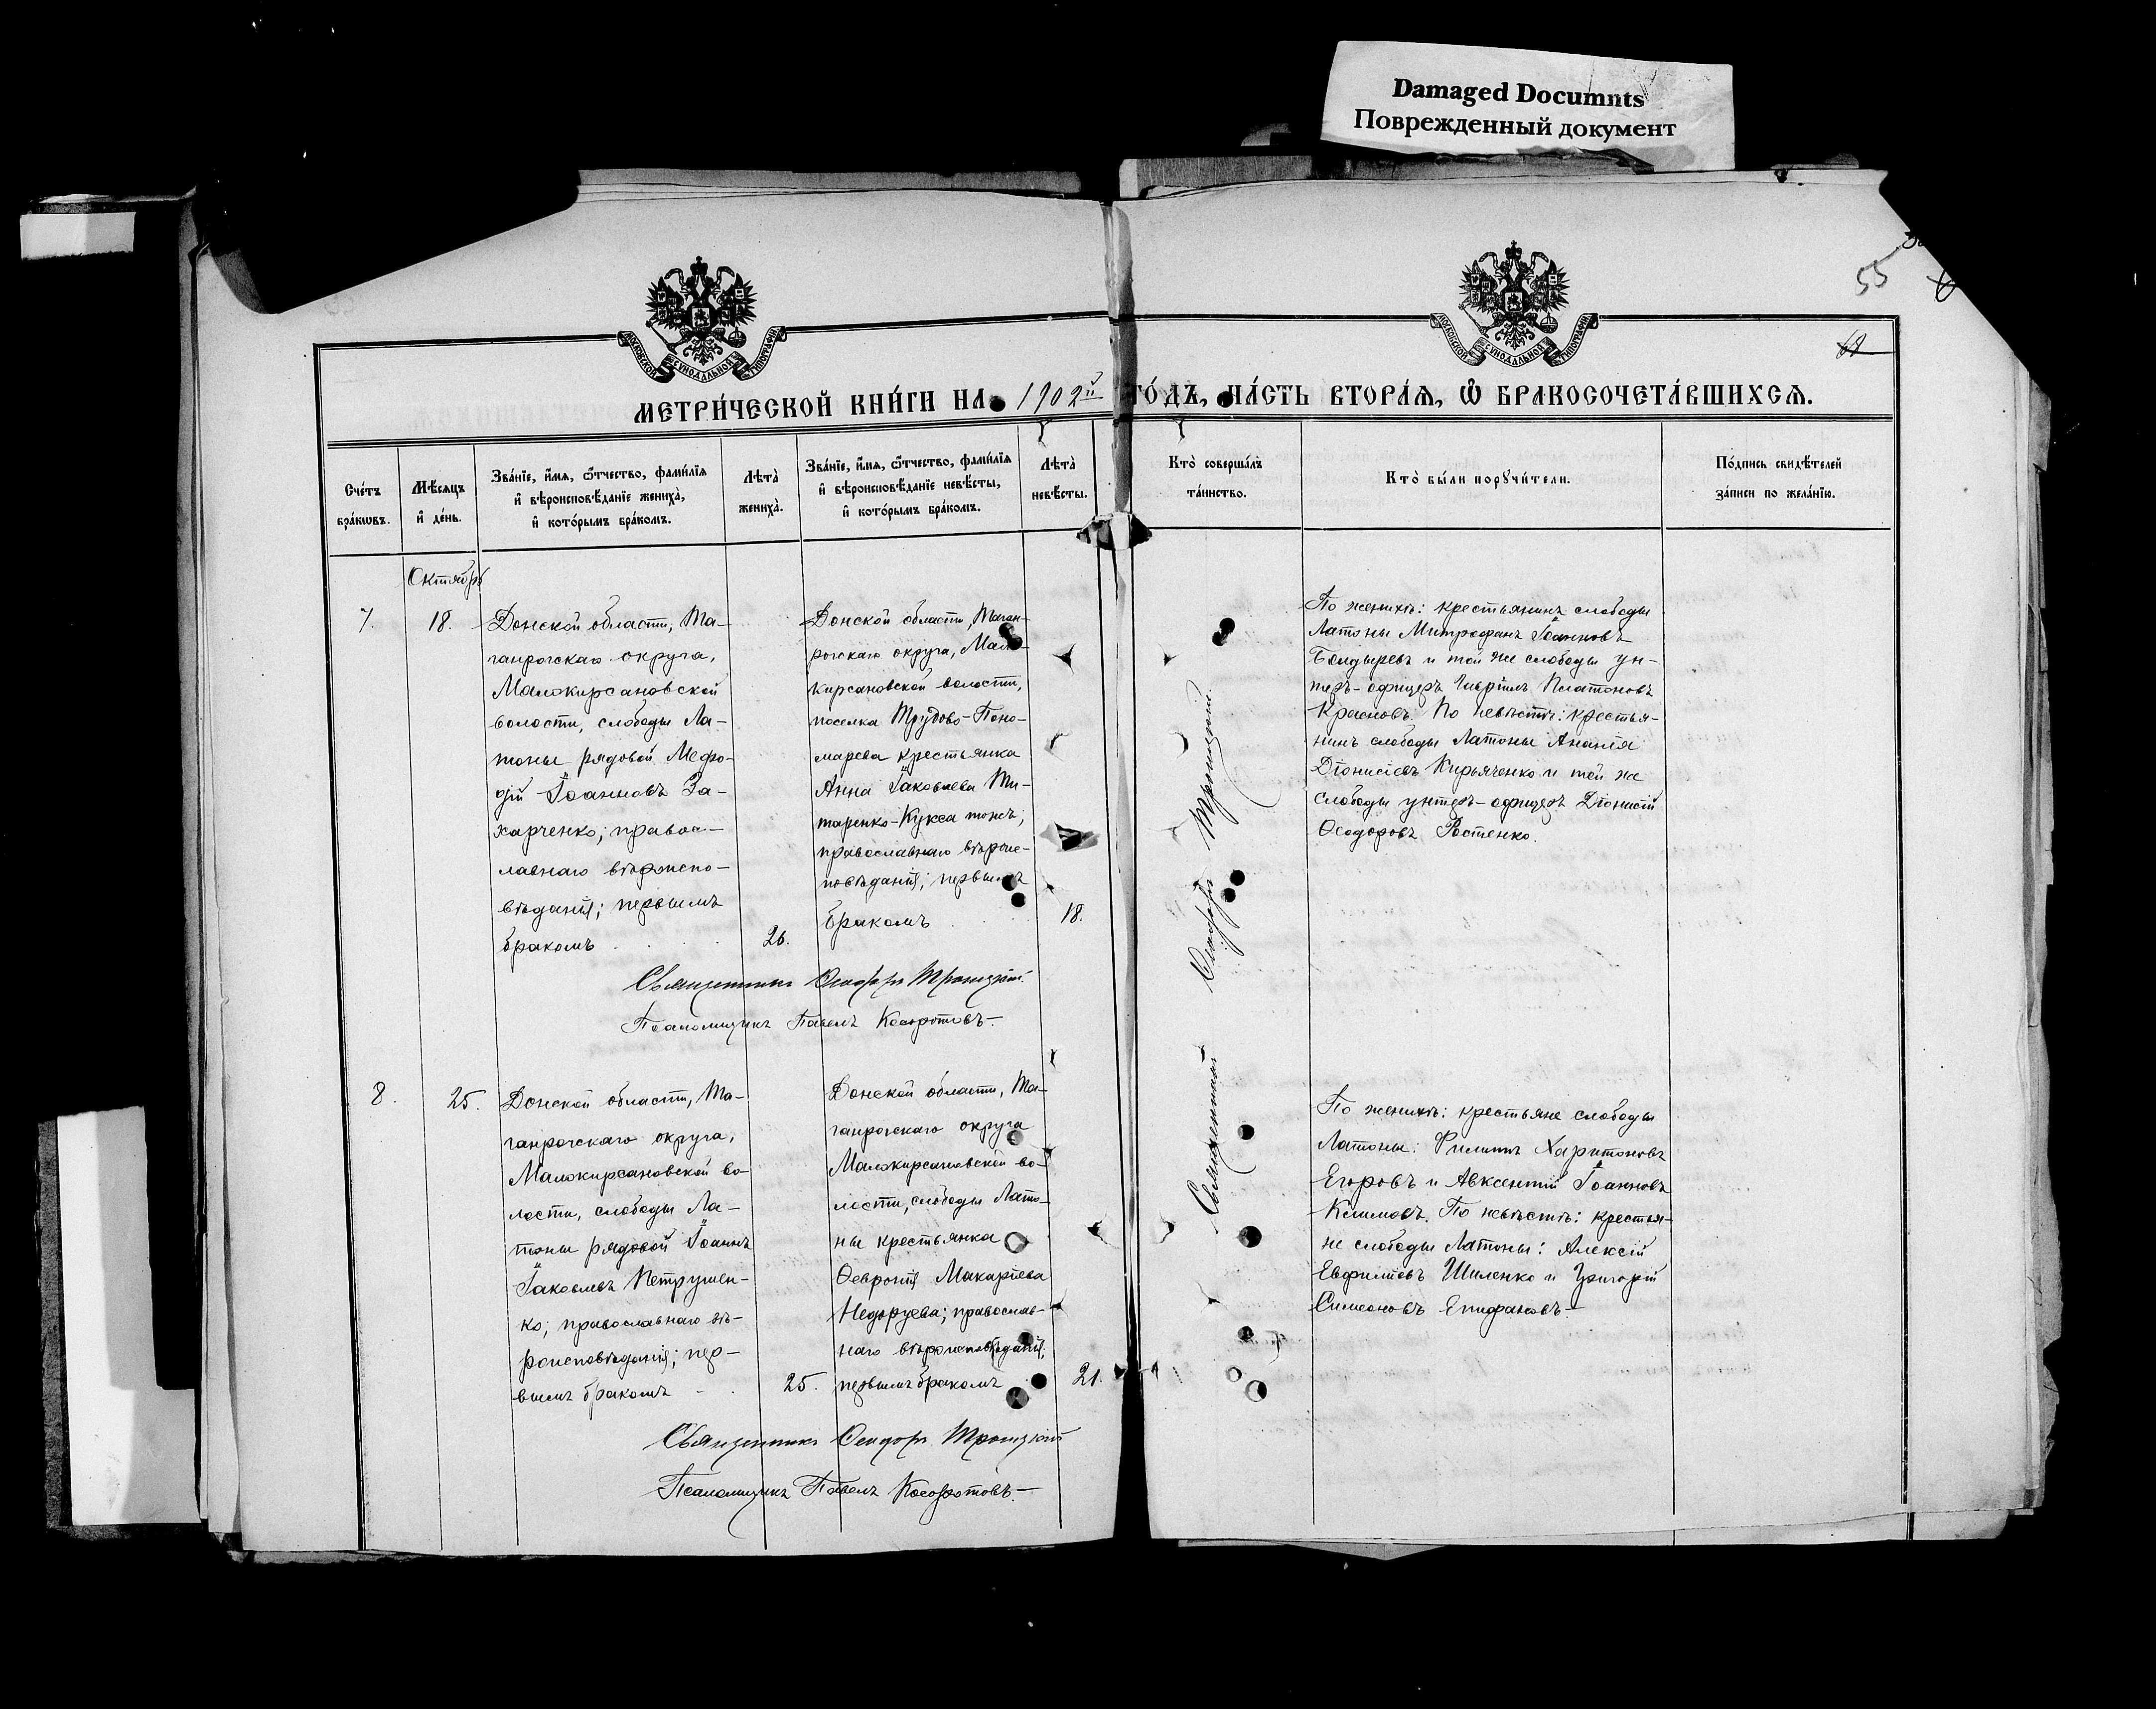 Damaged Documnts
Поврежденный документ
55
МОСКОВСКОЙ СѴНОДАЛЬНОЙ ТИПОГРАФІИ
МОСКОВСКОЙ СѴНОДАЛЬНОЙ ТИПОГРАФІИ
МЕТРИ́ЧЕСКОЙ КНИ́ГИ НА 1902й ГО́ДЪ, ЧА́СТЬ ВТОРА́Я, Ѡ҆ БРАКОСОЧЕТА́ВШИХСЯ.
Сче́тъ
бра́кѡвъ.
Мѣ́сяцъ
и҆ де́нь.
Зва́нїе, и҆́мя, ѻ҆́тчество, фами́лїя
и҆ вѣроисповѣ́данїе жениха̀,
и҆ кото́рымъ бра́комъ.
Лѣта̀
жениха̀.
Зва́нїе, и҆́мя, ѻ҆́тчество, фами́лїя
и҆ вѣроисповѣ́данїе невѣ́сты,
и҆ кото́рымъ бра́комъ.
Лѣта̀
невѣ́сты.
Кто̀ соверша́лъ
та́инство.
Кто̀ бы́ли порꙋчи́тели.
По́дпись свидѣ́телей
за́писи по жела́нїю.
Октябрь
7.
18.
Донской области, Та-
ганрогскаго округа,
Малокирсановской
волости, слободы Ла-
тоны рядовой Мефо-
дій Іоанновъ За-
харченко; правос-
лавнаго вѣроиспо-
вѣданія; первымъ
бракомъ
26.
Донской области, Таган-
рогскаго округа, Мало-
кирсановской волости,
поселка Трудово-Поно-
марева крестьянка
Анна Іаковлева Ти-
таренко-Кукса тожъ;
православнаго вѣроис-
повѣданія; первымъ
бракомъ
18.
Священникъ Ѳеодоръ Троицкій.
По женихѣ: крестьянинъ слободы
Латоны Митрофанъ Іоанновъ
Болдыревъ и той же слободы ун-
теръ-офицеръ Гавріилъ Платоновъ
Красновъ. По невѣстѣ: крестья-
нинъ слободы Латоны Ананія
Діонисіевъ Кирьяченко и той же
слободы унтеръ-офицеръ Діонисій
Ѳеодоровъ Костенко.
Священникъ Ѳеодоръ Троицкій.
Псаломщикъ Павелъ Косоротовъ.
8.
25.
Донской области, Та-
ганрогскаго округа,
Малокирсановской во-
лости, слободы Ла-
тоны рядовой Іоаннъ
Іаковлевъ Петрушен-
ко; православнаго вѣ-
роисповѣданія; пер-
вымъ бракомъ
25.
Донской области, Та-
ганрогскаго округа
Малокирсановской во-
лости, слободы Лато-
ны крестьянка
Ѳевронія Макаріева
Недоруева; православ-
наго вѣроисповѣданія;
первымъ бракомъ
21.
По женихѣ: крестьяне слободы
Латоны: Филиппъ Харитоновъ
Егоровъ и Авксентій Іоанновъ
Климовъ. По невѣстѣ: крестья-
не слободы Латоны: Алексій
Евфиміевъ Шиленко и Григорій
Симеоновъ Епифановъ.
Священникъ Ѳеодоръ Троицкій
Псаломщикъ Павелъ Косоротовъ.